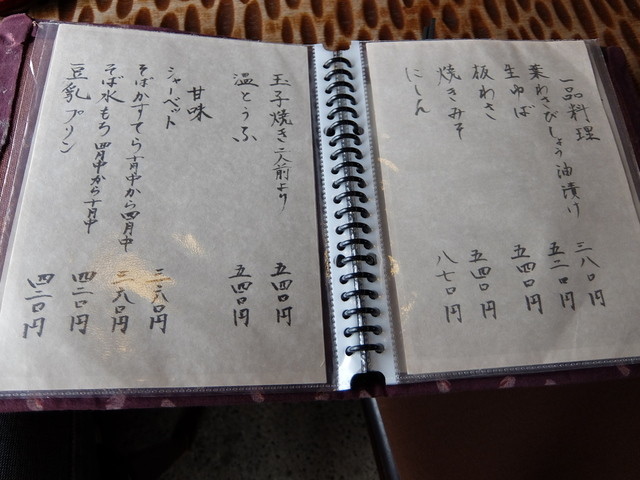 一品料理
葉わさびしょう油漬け 三八〇円
生ゆば 五二〇円
板わさ 五四〇円
焼きみそ 五四〇円
にしん 八七〇円
玉子焼き二人前より 五四〇円
温とうふ 五四〇円
甘味
シャーベット 三六〇円
そばかすてら十月中から四月中 三六〇円
そば水もち 四月中から十月中 四二〇円
豆乳プリン 四二〇円